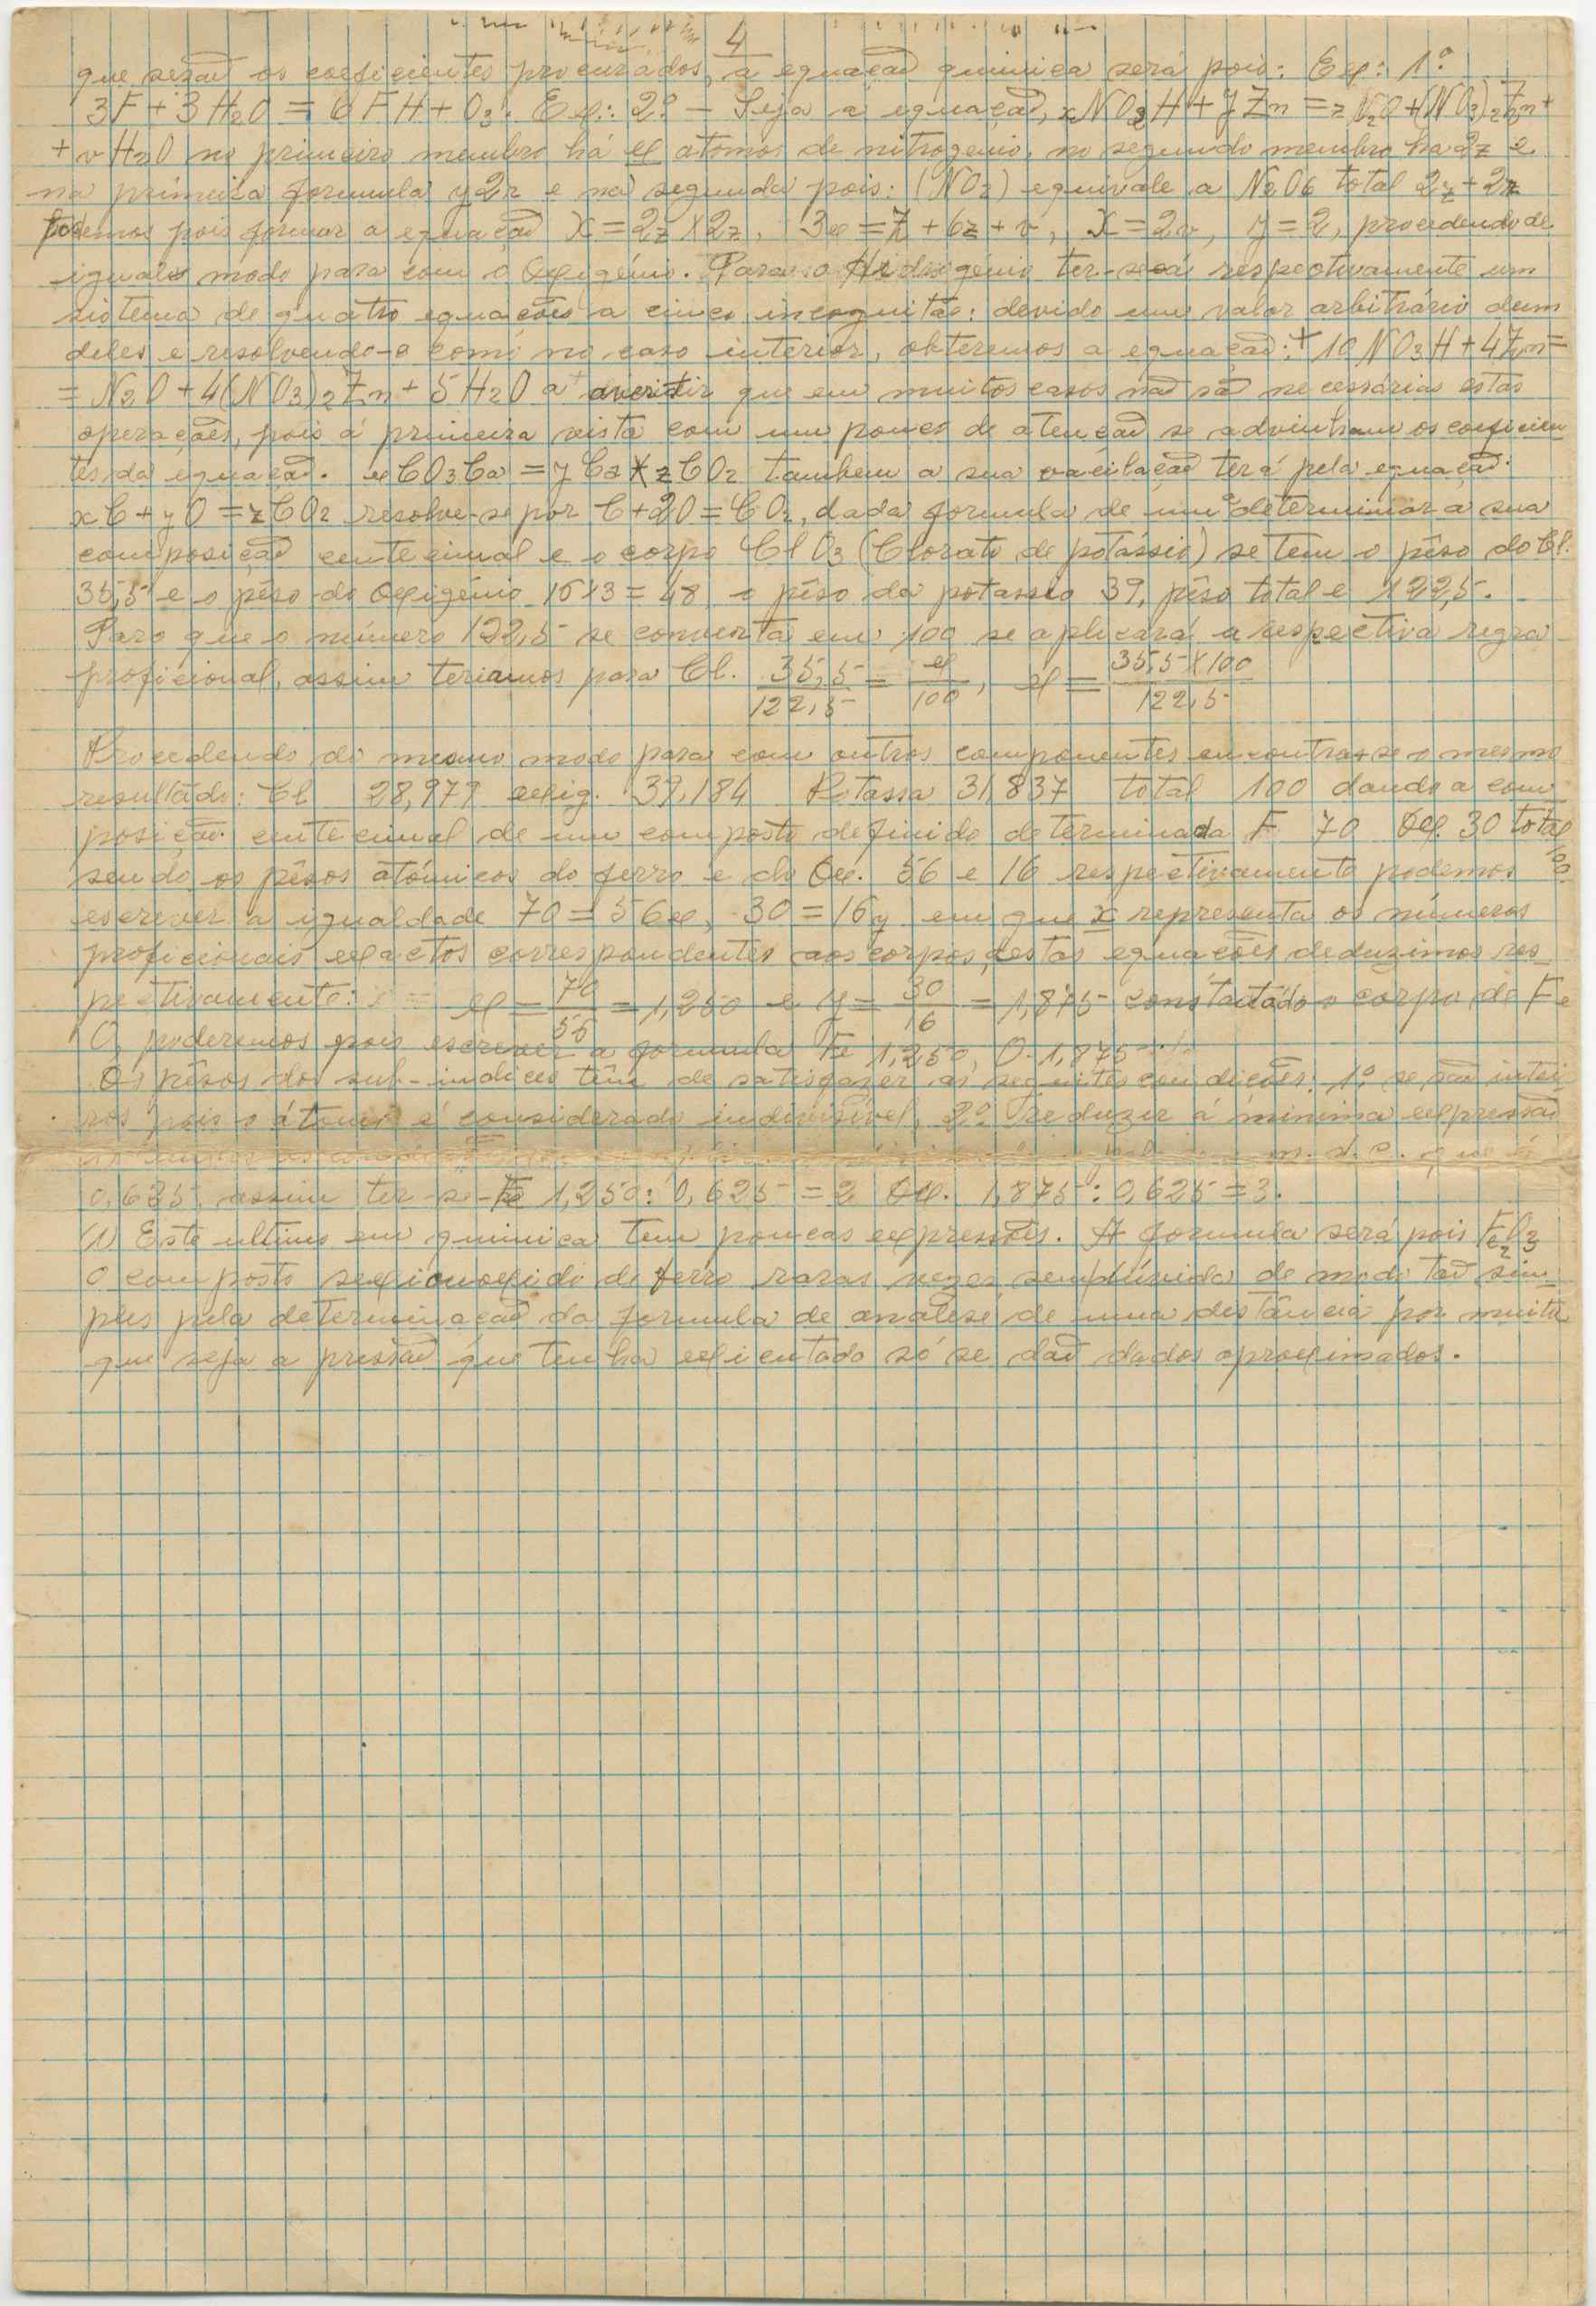 4
que serão os coeficientes procurados, a equação quimica será pois: Ex: 1.º
3F + 3H2O = 6FH + O3. Ex.: 2.º — Seja a equação, xNO3H + yZn = zN2O + (NO3)2Zn +
+ vH2O no primeiro membro há x atomos de nitrogenio, no segundo membro ha 2z e
na primeira formula y2z e na segunda pois: (NO2) equivale a N2O6 total 2z + 2z
podemos pois formar a equação X = 2z X 2z, 3x = z + 6z + v, X = 2v, y = 2, procedendo de
igual modo para com o Oxigénio. Para o Hidrogénio ter-se-á respectivamente um
sistema de quatro equações a cinco incognitas: devido um valor arbitrário dum
deles e resolvendo-o como no caso interior, obteremos a equação: + 10 NO3H + 4Zn =
= N2O + 4(NO3)2Zn + 5H2O a advertir que em muitos casos não são necessárias estas
operações, pois á primeira vista com um pouco de atenção se advinham os coeficien
tes da equação. x CO3Ca = y Ca X z CO2 tambem a sua vacilação terá pela equação:
xC + yO = zCO2 resolve-se por C + 2O = CO2, dada formula de um determinar a sua
composição centecimal e o corpo ClO3 (Clorato de potássio) se tem o pêso do Cl.
35,5 e o pêso do Oxigénio 16X3 = 48, o pêso da potassio 39, pêso total e 122,5.
Para que o número 122,5 se converta em 100 se aplicará a respectiva regra
proficional, assim teriamos para Cl. 35,5/122,5 = x/100, x = 35,5X100/122,5
Procedendo do mesmo modo para com outros componentes encontra-se o mesmo
resultado: Cl 28,979 oxig. 39,184 Potassa 31,837 total 100 dando a com
posição centecimal de um composto definido determinada F 70 Ox. 30 total
100
sendo os pêsos atómicos do ferro e do Ox. 56 e 16 respectivamente podemos
escrever a igualdade 70 = 56x, 30 = 16y em que x representa os números
proficionais exactos correspondentes aos corpos, destas equações deduzimos res
pectivamente: x = 70/56 = 1,250 e y = 30/16 = 1,875 constatado o corpo de Fe
O, poderemos pois escrever a formula Fe 1,250, O. 1,875
Os pêsos dos sub-indices têm de satisfazer as seguintes condições: 1.º se são intei
ros pois o átomo é considerado indivisível, 2.º reduzir á minima expressão
m. d. c. que é
0,625, assim ter-se Fe 1,250 : 0,625 = 2 Ox. 1,875 : 0,625 = 3.
(1) Este ultimo em quimica tem poucas expressões. A formula será pois Fe2O3
O composto sexionoxido de ferro raras vezes de modo tão sim
ples pela determinação da formula de análese de uma distância por muita
que seja a pressão que tenha só se dão dados aproximados.